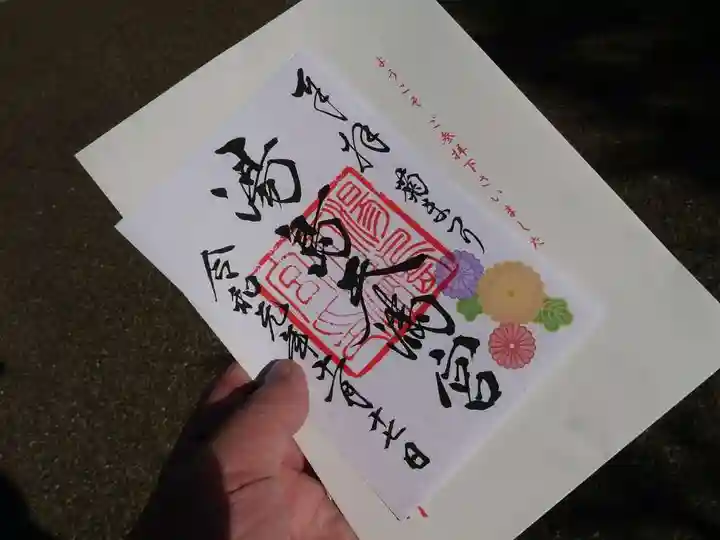 ようこそご参拝下さいました
奉拝 菊まつり
湯島天満宮
令和元年十一月十七日